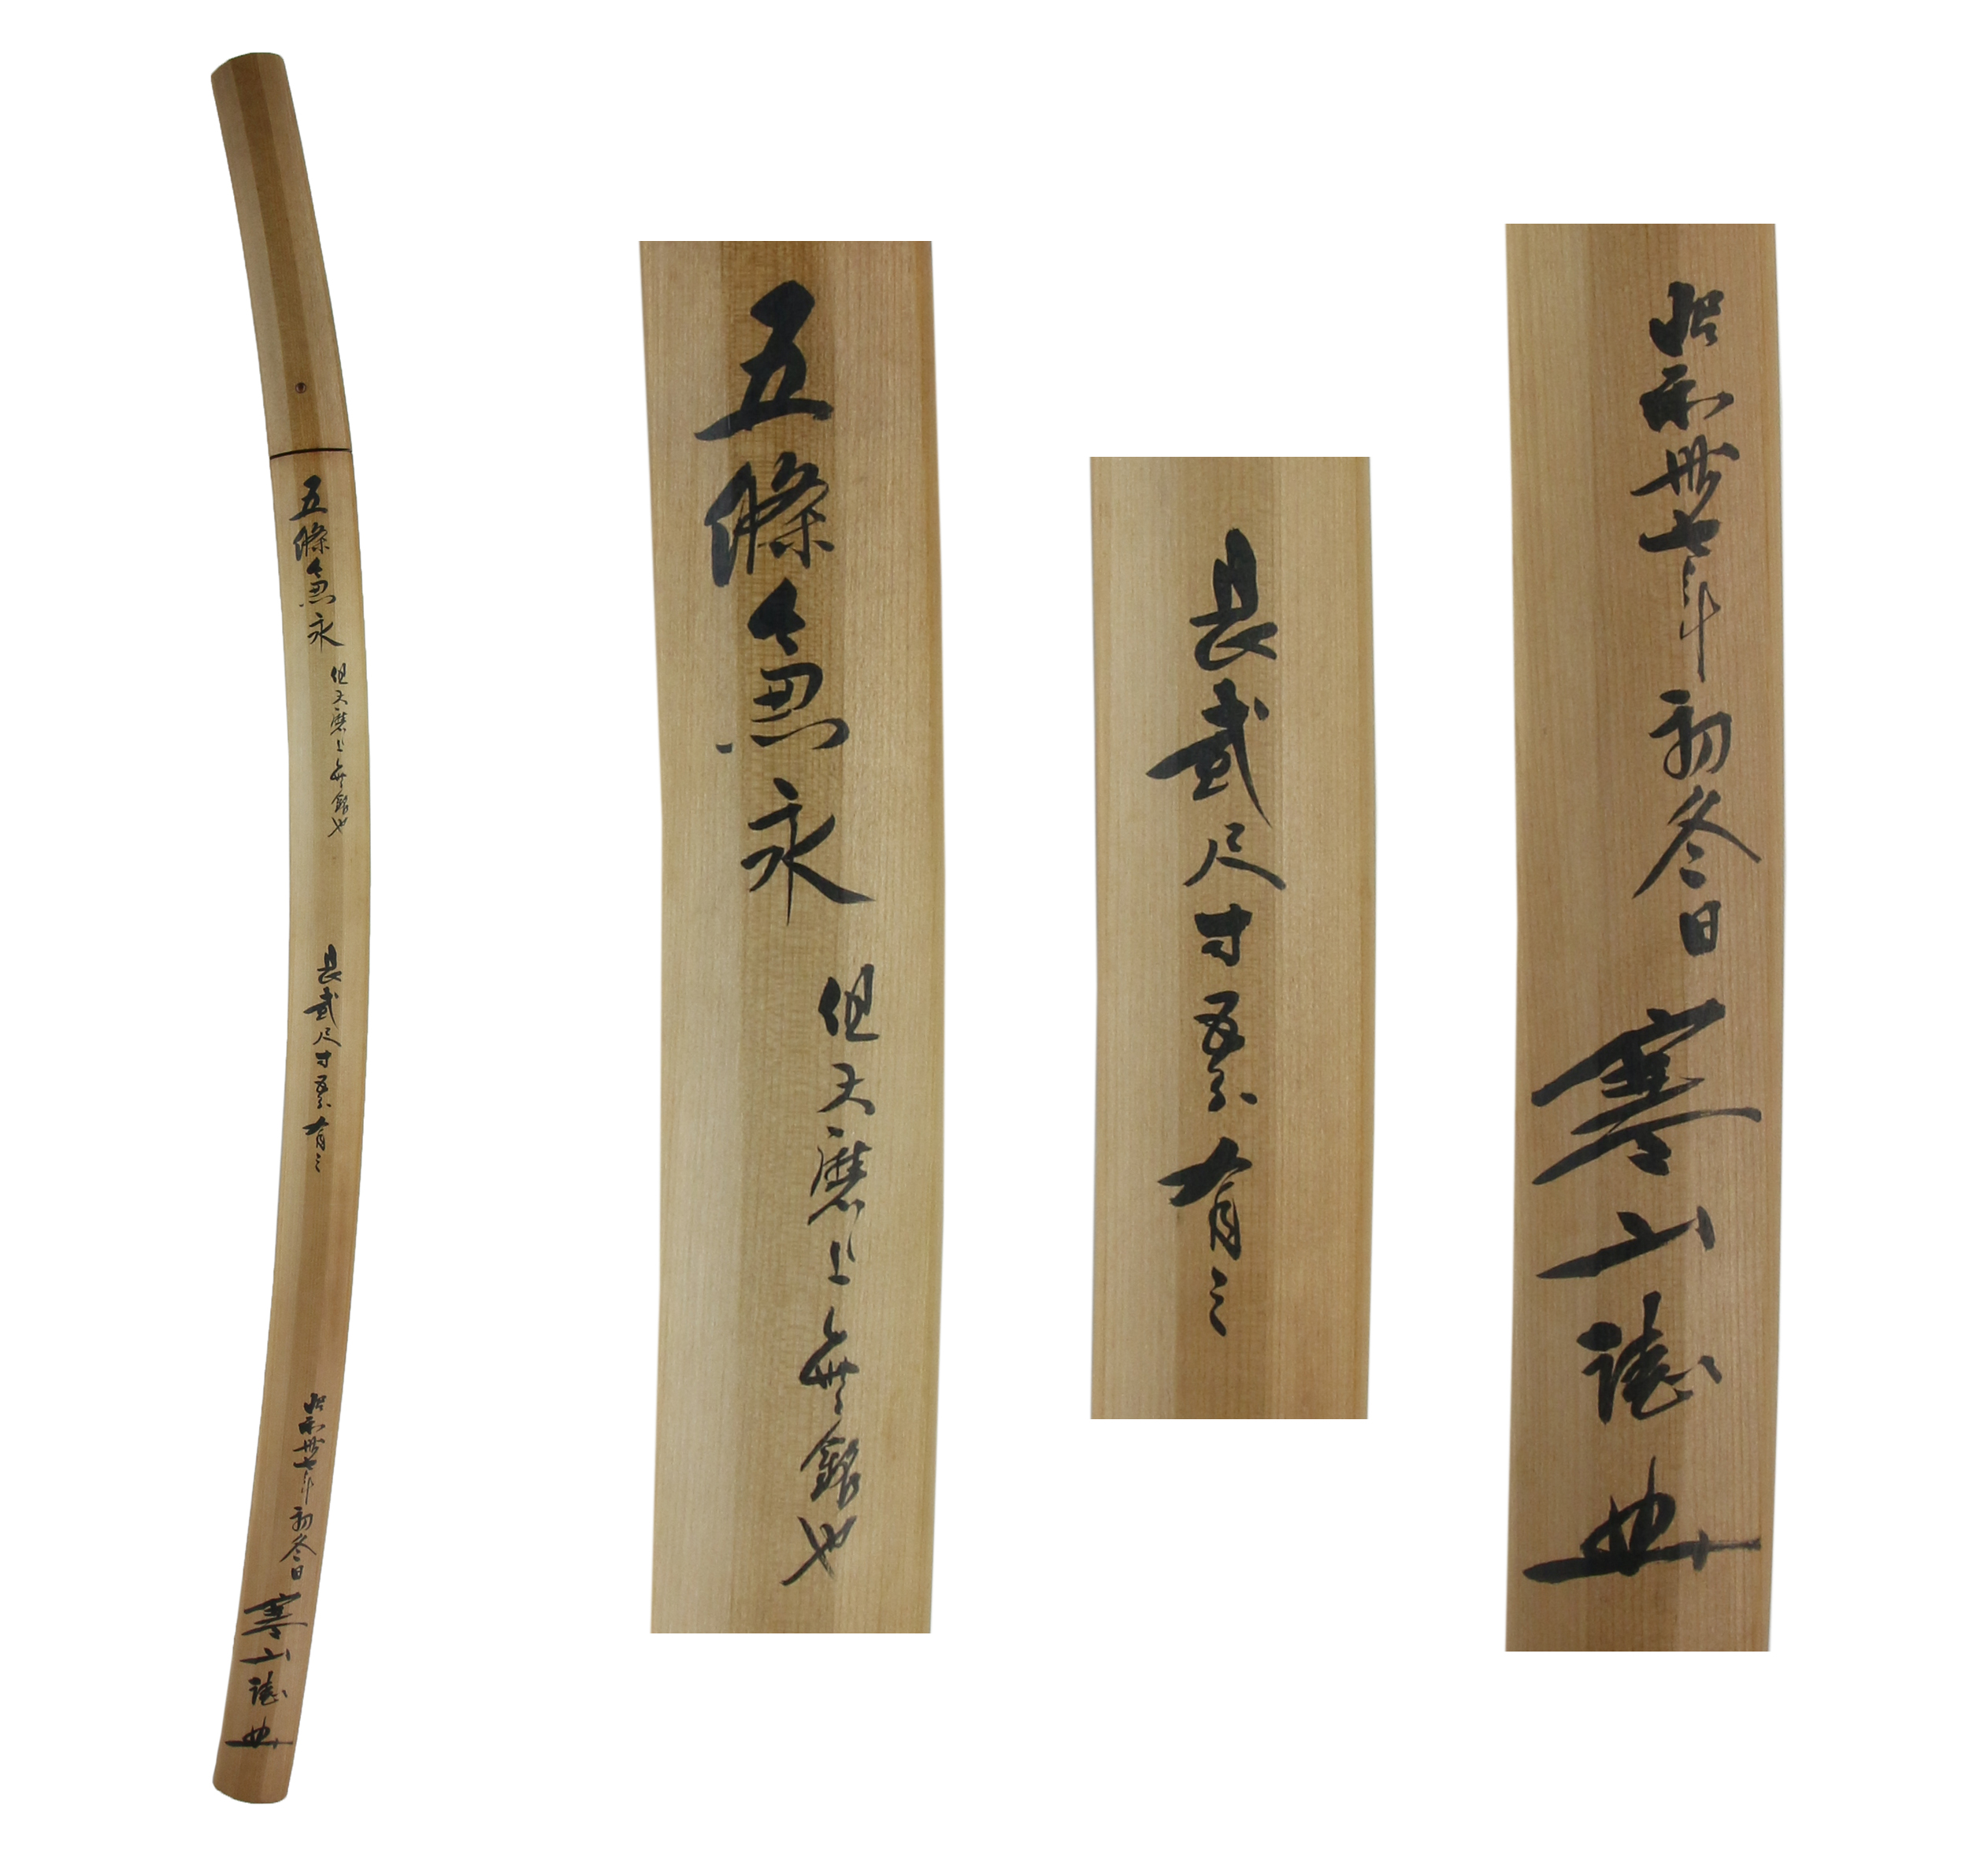 五條兼永
但大磨上無銘也
長貳尺寸五分有之
昭和卅七年初冬日
寒山誌
五條兼永
但大磨上無銘也
長貳尺寸五分有之
昭和卅七年初冬日
寒山誌